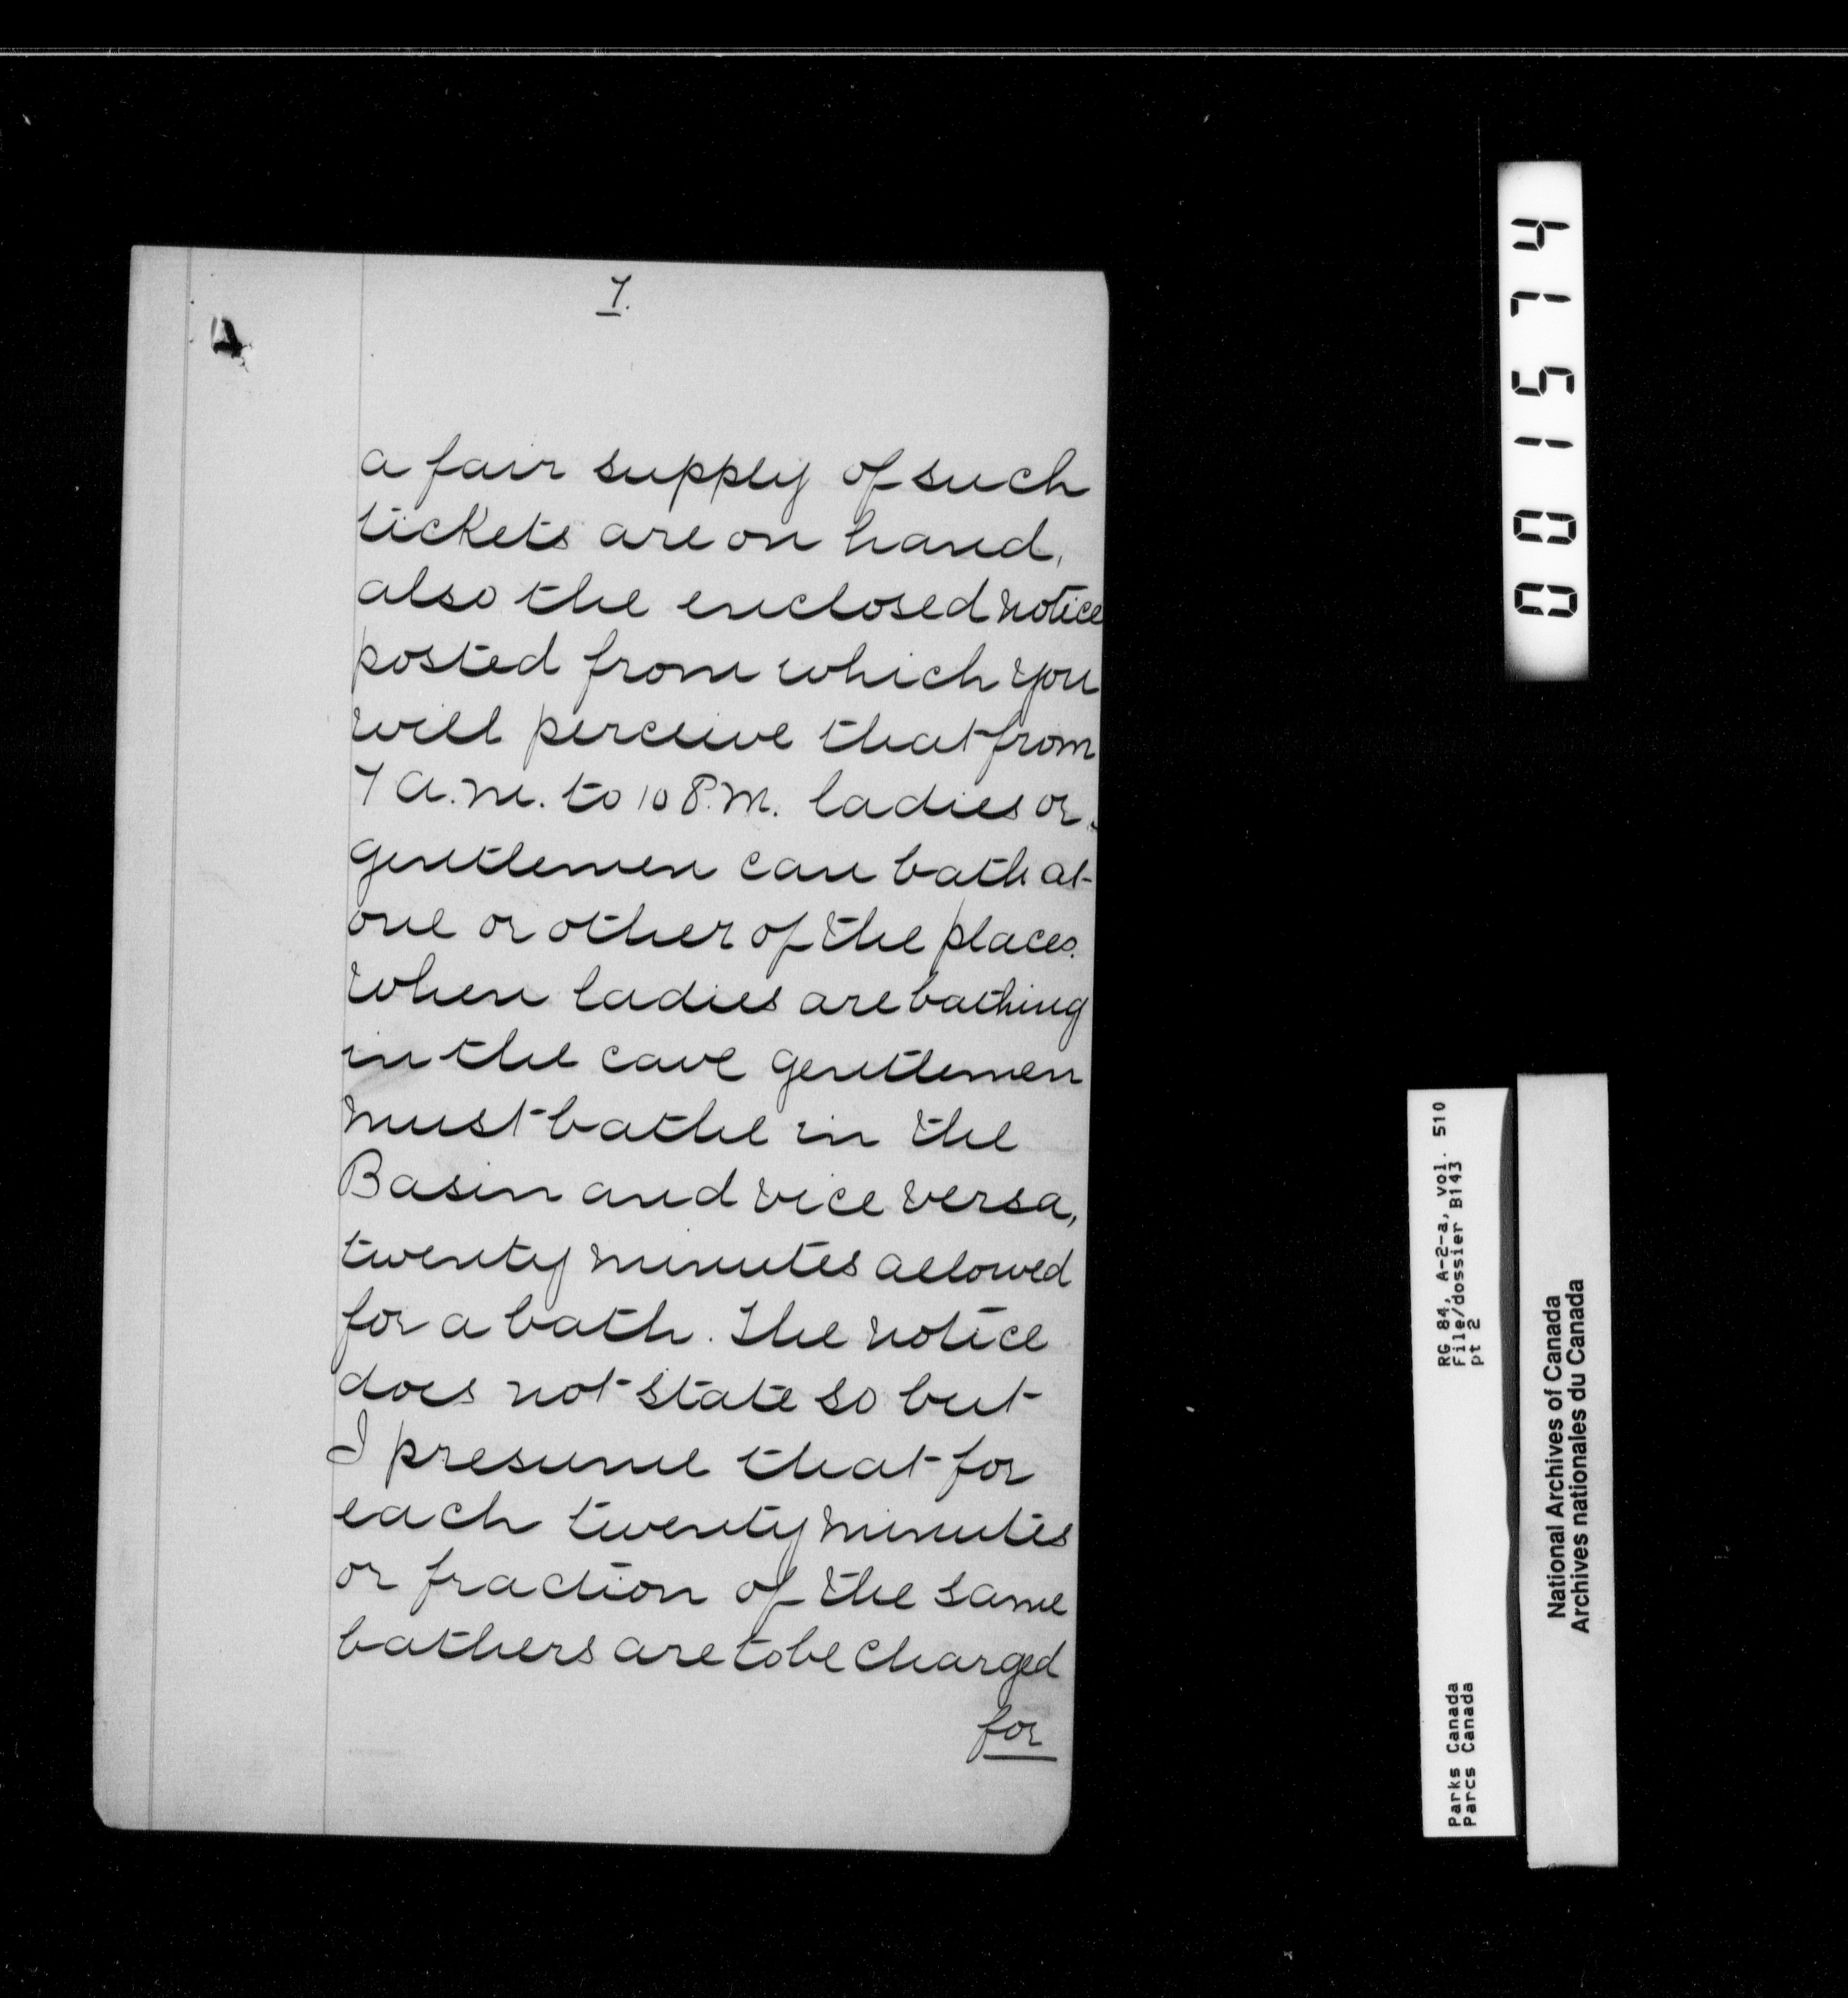 7.
a fair supply of such
tickets are on hand,
also the enclosed notice
posted from which you
will perceive that from
7 a.m. to 10 P.M. ladies or
gentlemen can bath at
one or other of the places.
When ladies are bathing
in the cave gentlemen
must bathe in the
Basin and vice versa,
twenty minutes allowed
for a bath. The notice
does not state so but
I presume that for
each twenty minutes
or fraction of the same
bathers are to be charged
for
001574
RG 84, A-2-a, vol. 510
File/dossier B143
pt 2
Parks Canada
Parcs Canada
National Archives of Canada
Archives nationales du Canada